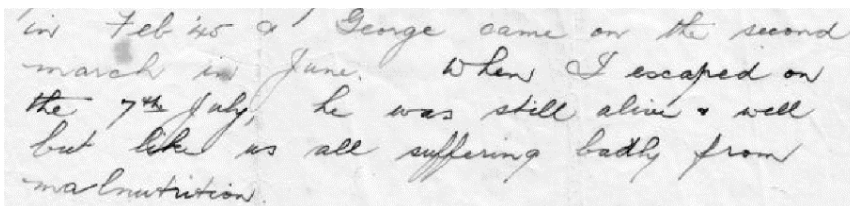 in Feb '45 & George came on the second
march in June. When I escaped on
the 7th July, he was still alive & well
but like us all suffering badly from
malnutrition.